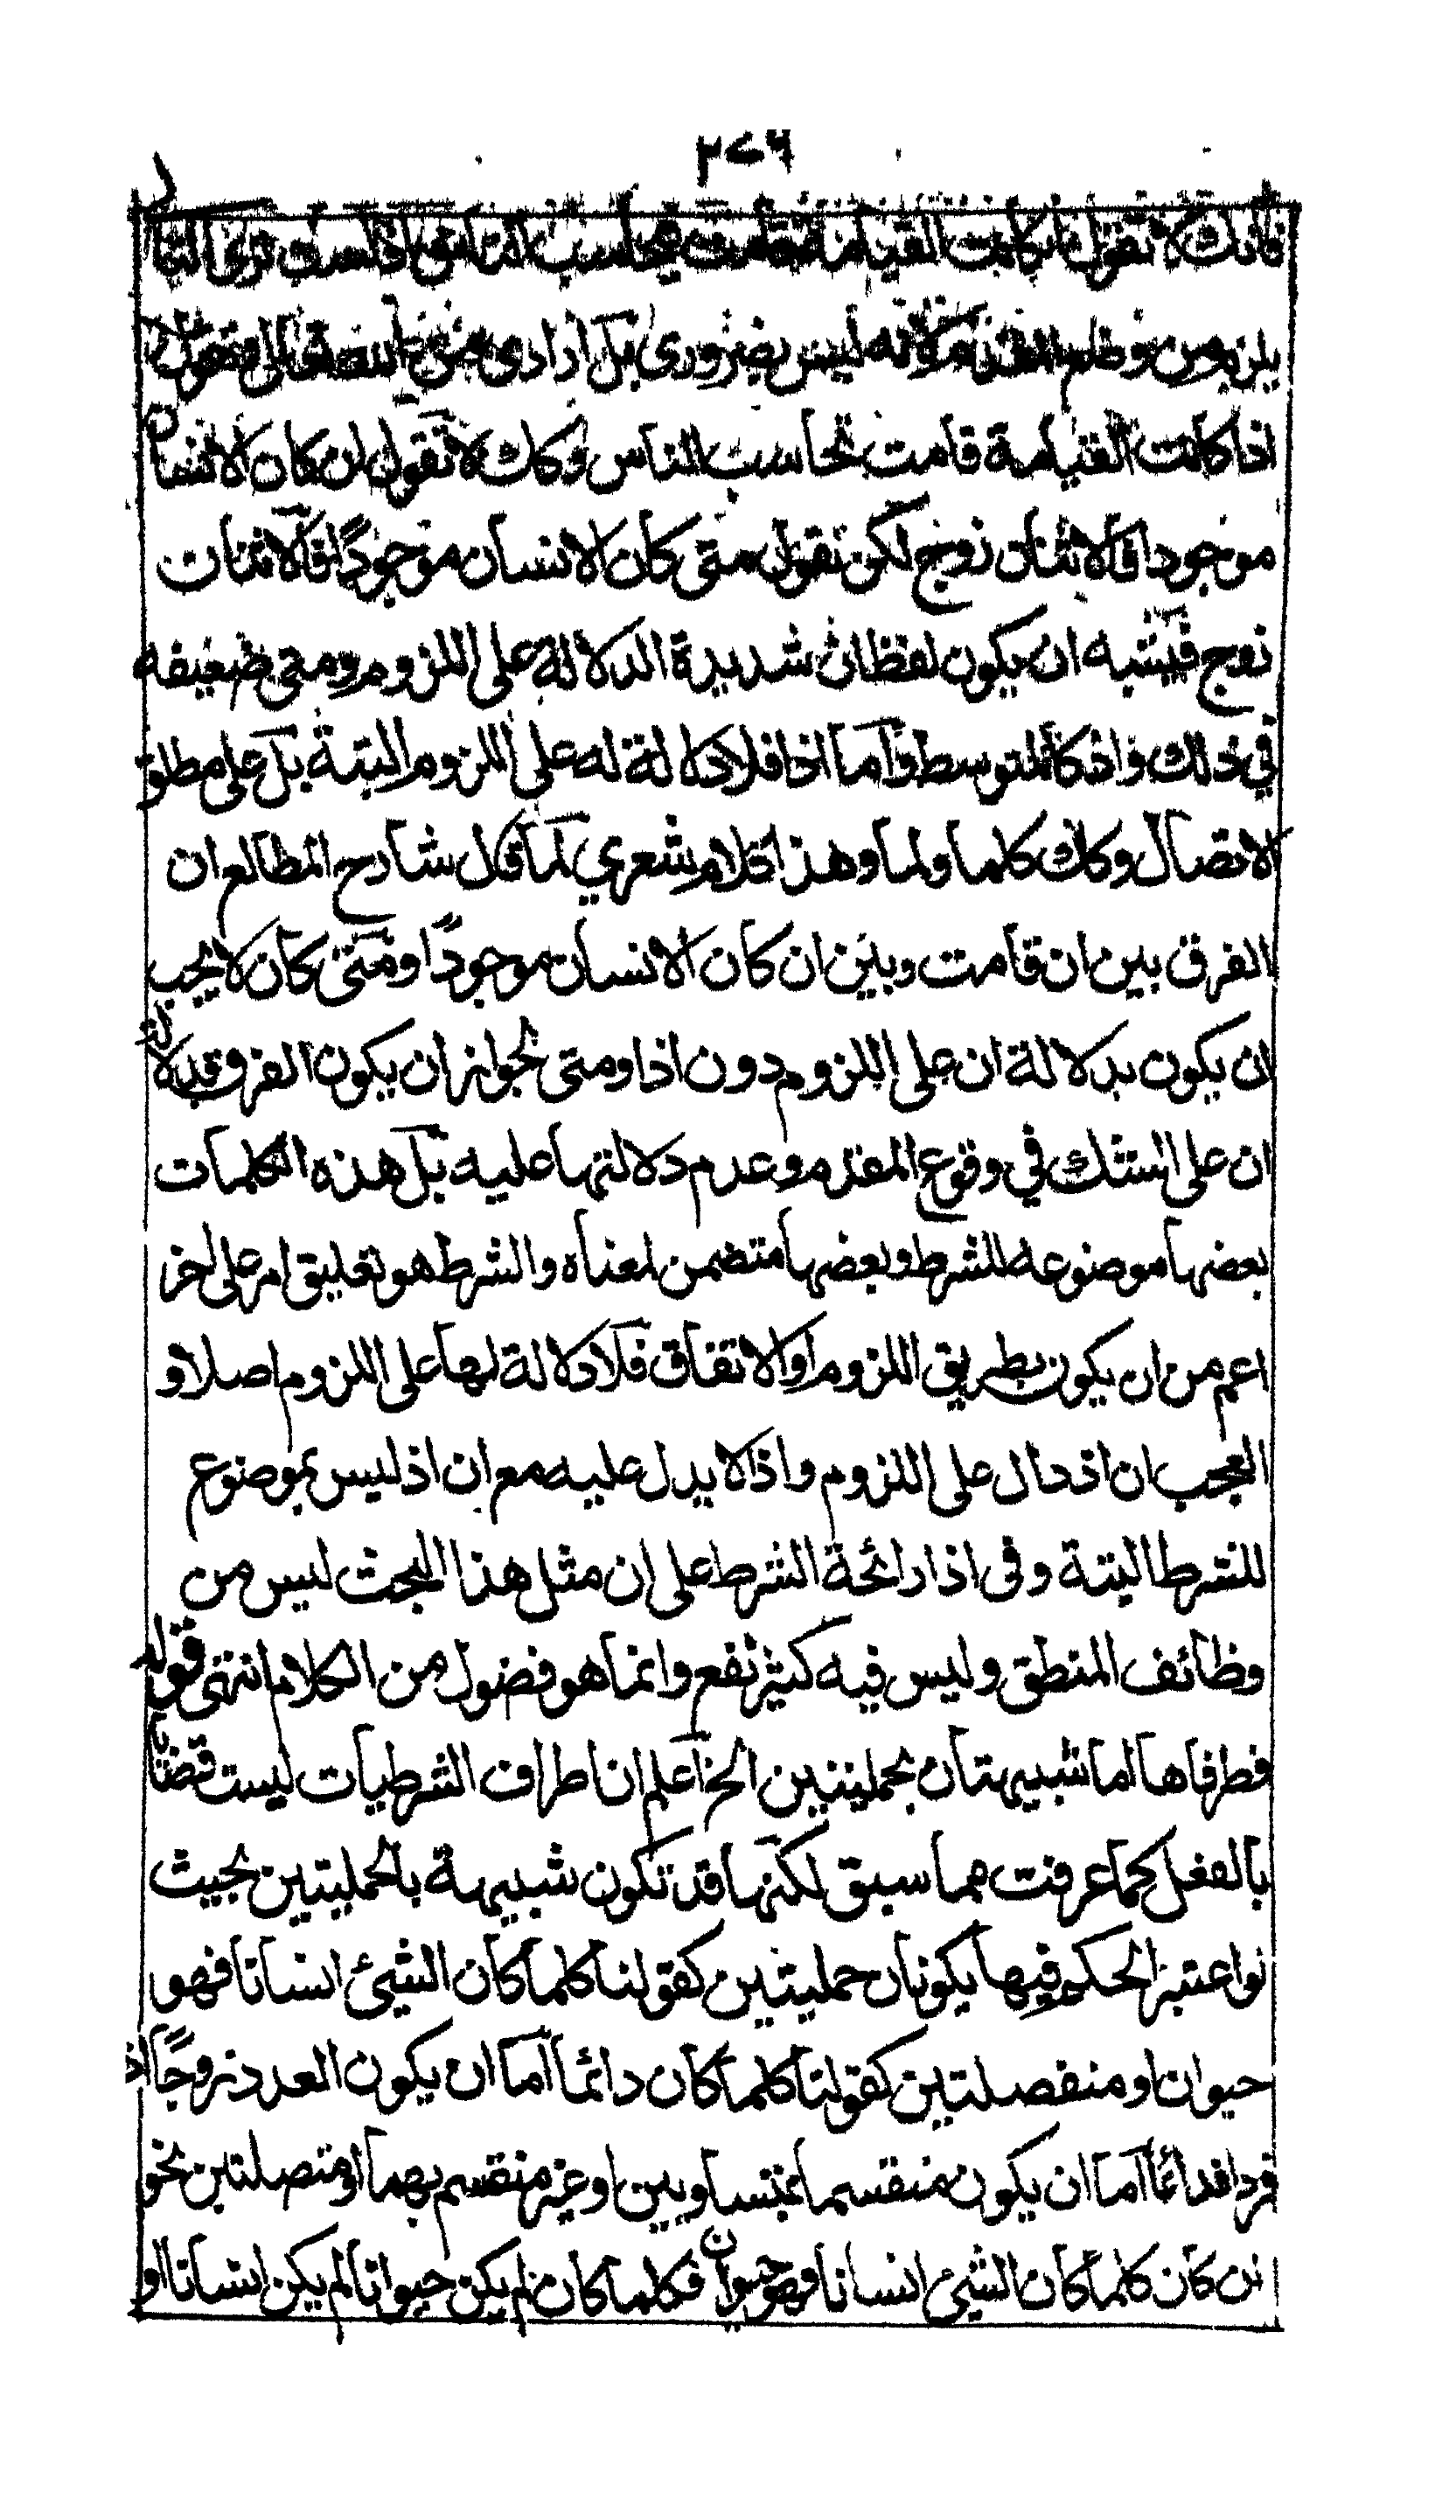 ٢٧٦
فانك لا تقول ان كانت القيامة قامت فيحاسب الناس اذ لست ترى التالي
يلزم من وضع المقدم لانه ليس بضروري بل ارادي من الله تعالى وتقول
اذا كانت القيامة قامت تحاسب الناس وكك لا تقول ان كان الانسان
موجودا فالاثنان زوج لكن تقول متى كان الانسان موجودًا فالاثنان
زوج فيشبه ان يكون لفظ ان شديدة الدلالة على اللزوم ومتى ضعيفه
في ذلك واذ كالمتوسط واما اذا فلا دلالة له على اللزوم البتة بل على مطلق
الاتصال وكك كلما ولما وهذا كلام شعري لما قال شارح المطالع ان
الفرق بين ان قامت وبين ان كان الانسان موجودًا ومتى كان لا يجب
ان يكون بدلالة ان على اللزوم دون اذا ومتى لجواز ان يكون الفرق بدلالة
ان على الشك في وقوع المقدم وعدم دلالتها عليه بل هذه الكلمات
بعضها موضوعه للشرط وبعضها متضمن لمعناه والشرط هو تعليق امر على اخر
اعم من ان يكون بطريق اللزوم او الاتفاق فلا دلالة لها على اللزوم اصلا و
العجب ان اذ دال على اللزوم واذا لا يدل عليه مع ان اذ ليس بموضوع
للشرط البتة وفي اذا رائحة الشرط على ان مثل هذا البحث ليس من
وظائف المنطق وليس فيه كثير نفع وانما هو فضول من الكلام انتهى قوله
فطرفاها اما شبيهتان بحمليتين الخ اعلم ان اطراف الشرطيات ليست قضايا
بالفعل كما عرفت مما سبق لكنها قد تكون شبيهة بالحمليتين بحيث
لو اعتبر الحكم فيها يكونان حمليتين كقولنا كلما كان الشيئ انسانا فهو
حيوان او منفصلتين كقولنا كلما كان دائما اما ان يكون العدد زوجًا او
فردا فدائما اما ان يكون منقسما بمتساويين او غير منقسم بهما او متصلتين نحو
ان كان كلما كان الشيئ انسانا فهو حيوان فكلما كان لم يكن حيوانا لم يكن انسانا او